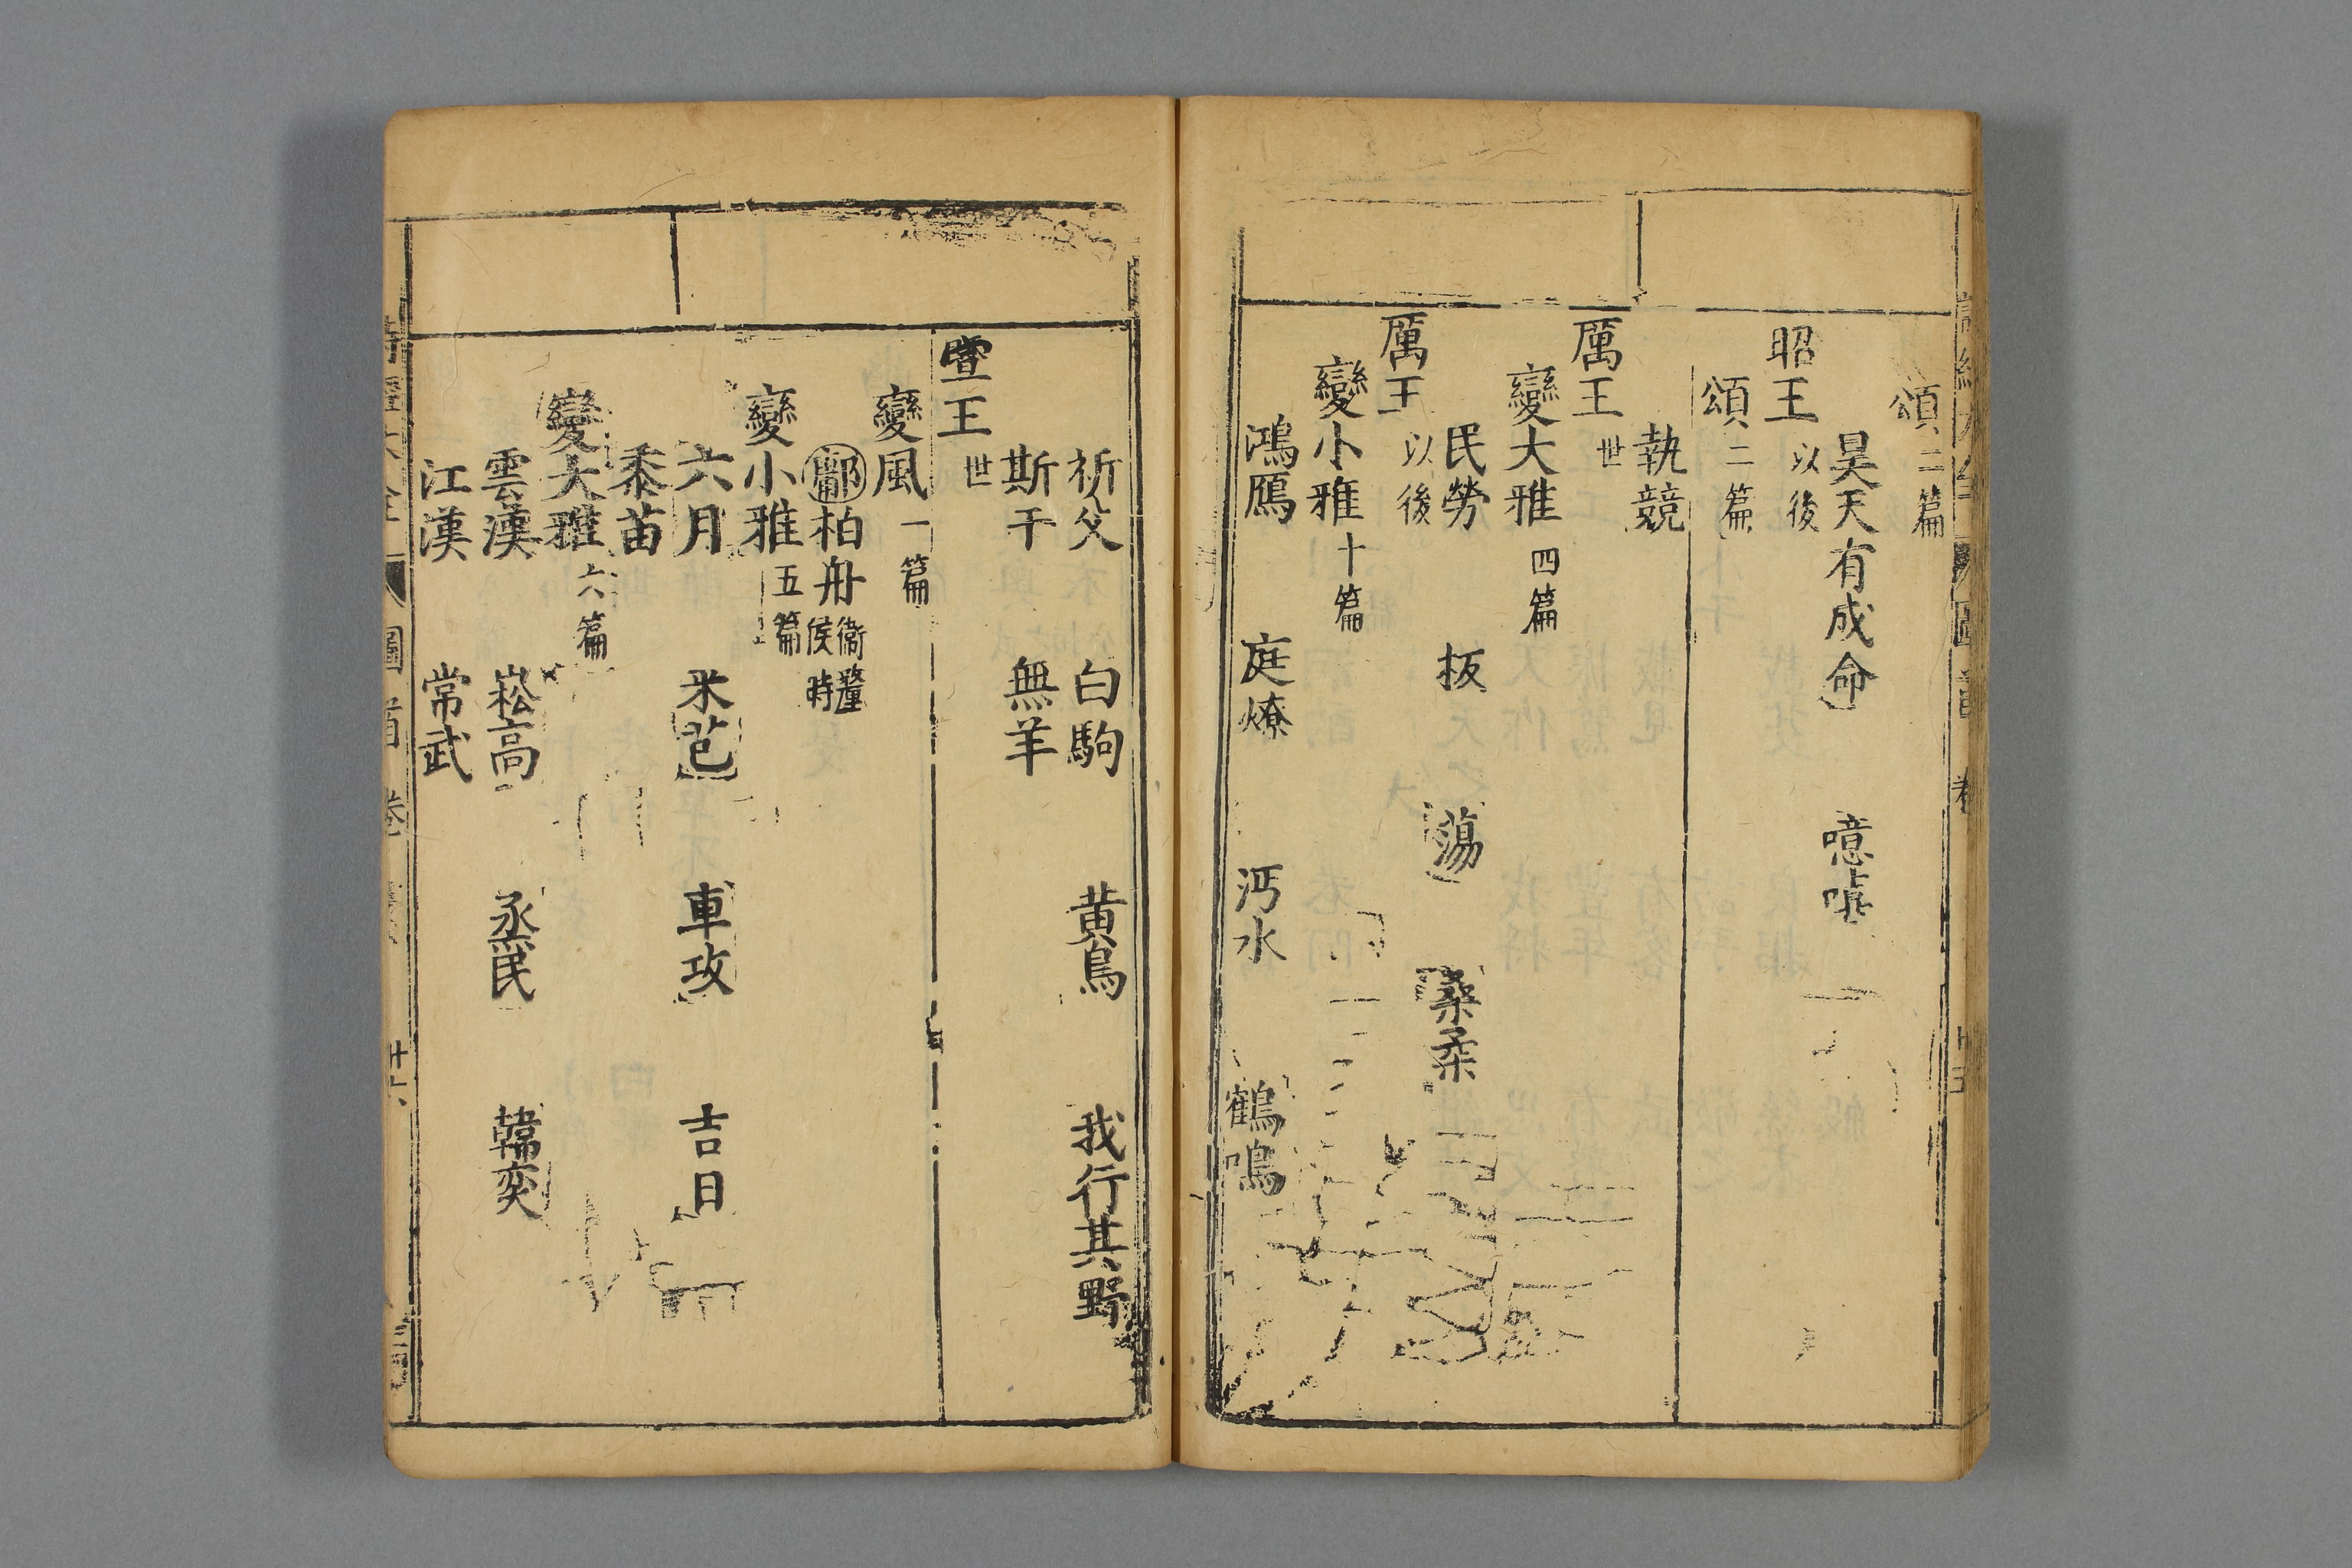 頌二篇
昊天有成命 噫嘻
昭王以後
頌二篇
執競
厲王世
變大雅四篇
民勞 板 蕩 桑柔
厲王以後
變小雅十篇
鴻鴈 庭燎 沔水 鶴鳴
祈父 白駒 黄鳥 我行其野
斯干 無羊
宣王世
變風一篇
鄘柏舟衛釐侯時
變小雅五篇
六月 采芑 車攻 吉日
黍苗
變大雅六篇
雲漢 崧高 烝民 韓奕
江漢 常武